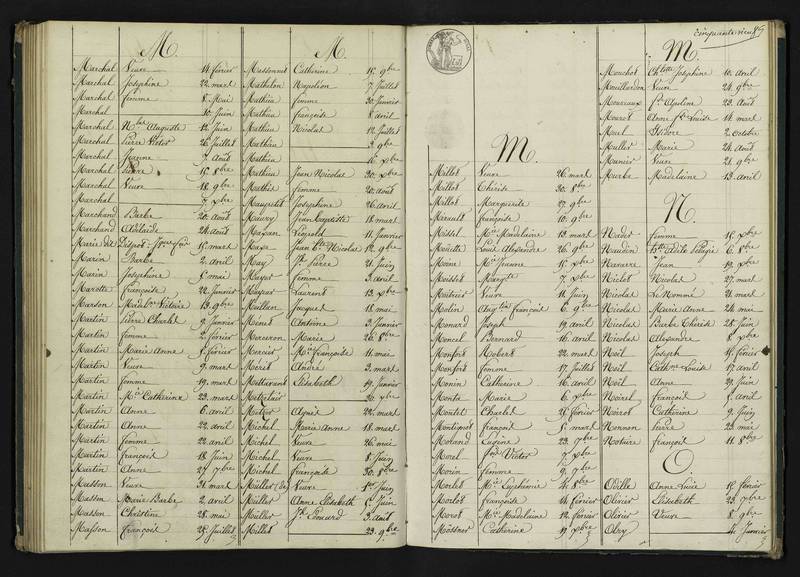 M.
Marchal Veuve 14 février
Marchal Josephine 22 mart
Marchal femme 8 Mai
Marchal 10 Juin
Marchal Nlas Auguste 12 Juin
Marchal Pierre Victor 26 Juillet
Marchal Jeanne 7 Août
Marchal Pierre 15 8bre
Marchal Veuve 18 9bre
Marchal 7 xbre
Marchand Barbe 20 Août
Marchand Adélaïde 24 Août
Marie dit
Marin Barbe 2 avril
Marin Josephine 5 mai
Marotte Françoise 22 Janvier
Marson Victoire 13 9bre
Martin Pierre Charles 9 Janvier
Martin femme 2 février
Martin Marie Anne 5 février
Martin Veuve 9 mart
Martin femme 19 mart
Martin Mie Catherine 23 mart
Martin Anne 6 avril
Martin Anne 22 avril
Martin femme 22 avril
Martin François 18 Juin
Martin Anne 27 7bre
Masson Veuve 31 mart
Masson Marie Barbe 2 avril
Masson Christine 28 mai
Masson François 25 Juillet
M.
Massonnet Catherine 15 9bre
Mathelon Napoléon 7 Juillet
Mathieu femme 30 Janvier
Mathieu Françoise 8 avril
Mathieu Nicolas 12 Juillet
Mathieu 3 9bre
Mathieu 16 xbre
Mathieu Jean Nicolas 30 xbre
Mathis femme 20 août
Maugetit Josephine 26 avril
Mauvy Jean Baptiste 18 mart
Mazan Léopold 11 Janvier
Jean Bte Nicolas 12 9bre
May Jh Pierre 21 Juin
Mayer femme 3 avril
Mayeur Laurent 13 xbre
Meillan Jacques 18 mai
Menet Antoine 3 Janvier
Merceron Marie 26 8bre
Mercier Mie Françoise 11 mai
André 3 mart
Elisabeth 19 Janvier
20 xbre
Meyer Agnès 22 mart
Michel Marie Anne 18 mart
Michel Veuve 26 mai
Michel Veuve 8 Juin
Michel Françoise 30 8bre
Millet Veuve 1er Juin
Millet Anne Elisabeth 5 Juin
Millet Jh Edouard 3 août
Millet 23 9bre
Cinquante neuf 59
M.
Millot Veuve 26 mart
Millot Thérèse 30 8bre
Millot Marguerite 27 9bre
Mirault Françoise 10 9bre
Missel Mie Madeleine 13 mart
Louis Alexandre 26 9bre
Moine Mie Jeanne 15 xbre
Moisset Margte 7 xbre
Moitrier Veuve 11 Juin
Molin François 6 9bre
Monard Joseph 19 avril
Moncel Bernard 16 avril
Monfort Robert 22 mart
Monfort femme 17 Juillet
Monin Catherine 16 avril
Monta Marie 6 xbre
Montet Charles 28 février
Montignot François 5 mart
Moraud Eugène 23 7bre
Morel Jph Victor 7 xbre
Morin femme 2 9bre
Morlet Mie Euphémie 16 xbre
Morlot Françoise 14 février
Morot Mie Madeleine 12 février
Mossner Catherine 19 xbre
M.
Mouchot Josephine 10 Avril
Mouillardon Veuve 24 9bre
Mourraux Apoline 22 Août
Mourot Anne Fse Louise 14 mart
Muel Isidore 2 octobre
Muller Marie 24 Août
Munier Veuve 21 9bre
Murbe Madelaine 13 avril
N.
Nader femme 15 xbre
Naudin 6 8bre
Navarre Jean 19 xbre
Niclot Nicolas 27 mart
Nicolas Le Nommé 21 mart
Nicolas Marie Anne 24 mai
Nicolas Barbe Thérèse 28 Juin
Nicolas Alexandre 8 xbre
Noël Joseph 15 février
Noël Cathne Louise 17 avril
Noël Anne 29 Juin
Noirel François 5 avril
Noirot Catherine 9 Juin
Nonnon Pierre 23 mai
Notaire François 11 8bre
O.
Obille Anne Lucie 12 février
Olivier Elisabeth 23 xbre
Olivier Veuve 8 9bre
Olry 4 Janvier